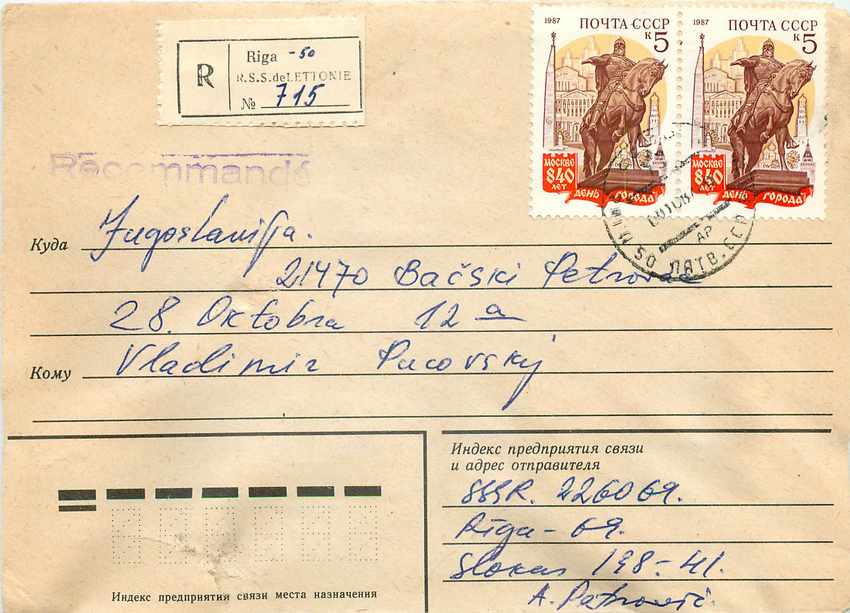 Riga -50
R
R.S.S.deLETTONIE
№ 715
Recommandé
1987 ПОЧТА СССР
к5
МОСКВЕ
840
ЛЕТ
ДЕНЬ ГОРОДА
1987 ПОЧТА СССР
к5
МОСКВЕ
840
ЛЕТ
ДЕНЬ ГОРОДА
50 ЛАТВ.ССР
АР
Куда Jugoslavija.
21470 Bački Petrovac
28. Oktobra 12 a
Кому Vladimir
Индекс предприятия связи
и адрес отправителя
SSSR. 226069.
Rīga-69.
Slokas 198-41.
A.
Индекс предприятия связи места назначения